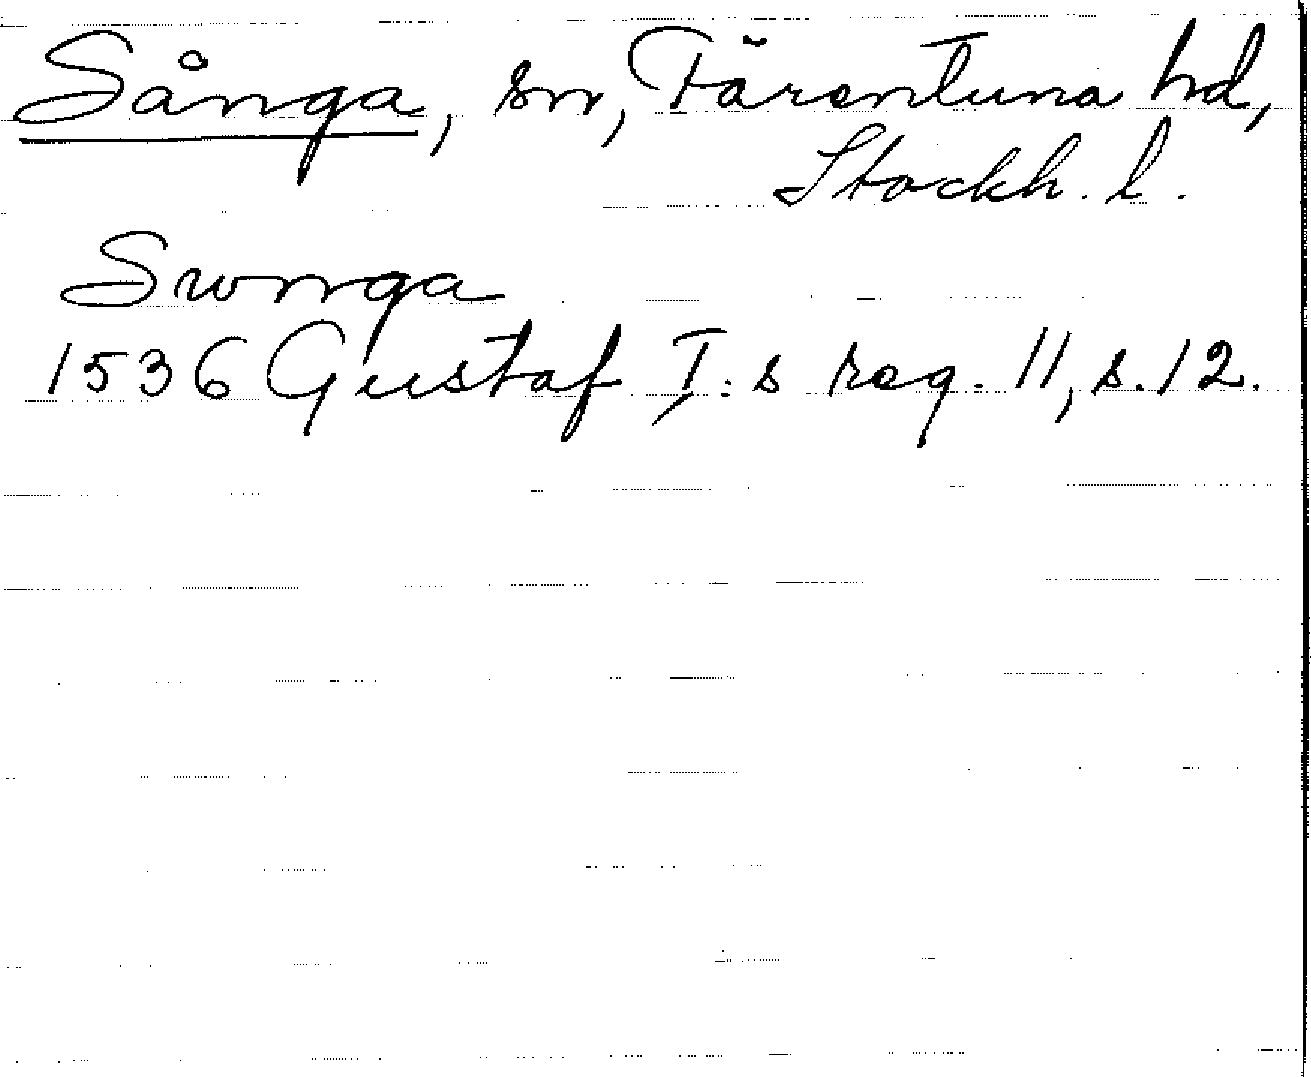 Sånga, sn, Färentuna hd,
Stockh. l.
Swnga
1536 Gustaf I:s reg. 11, s. 12.